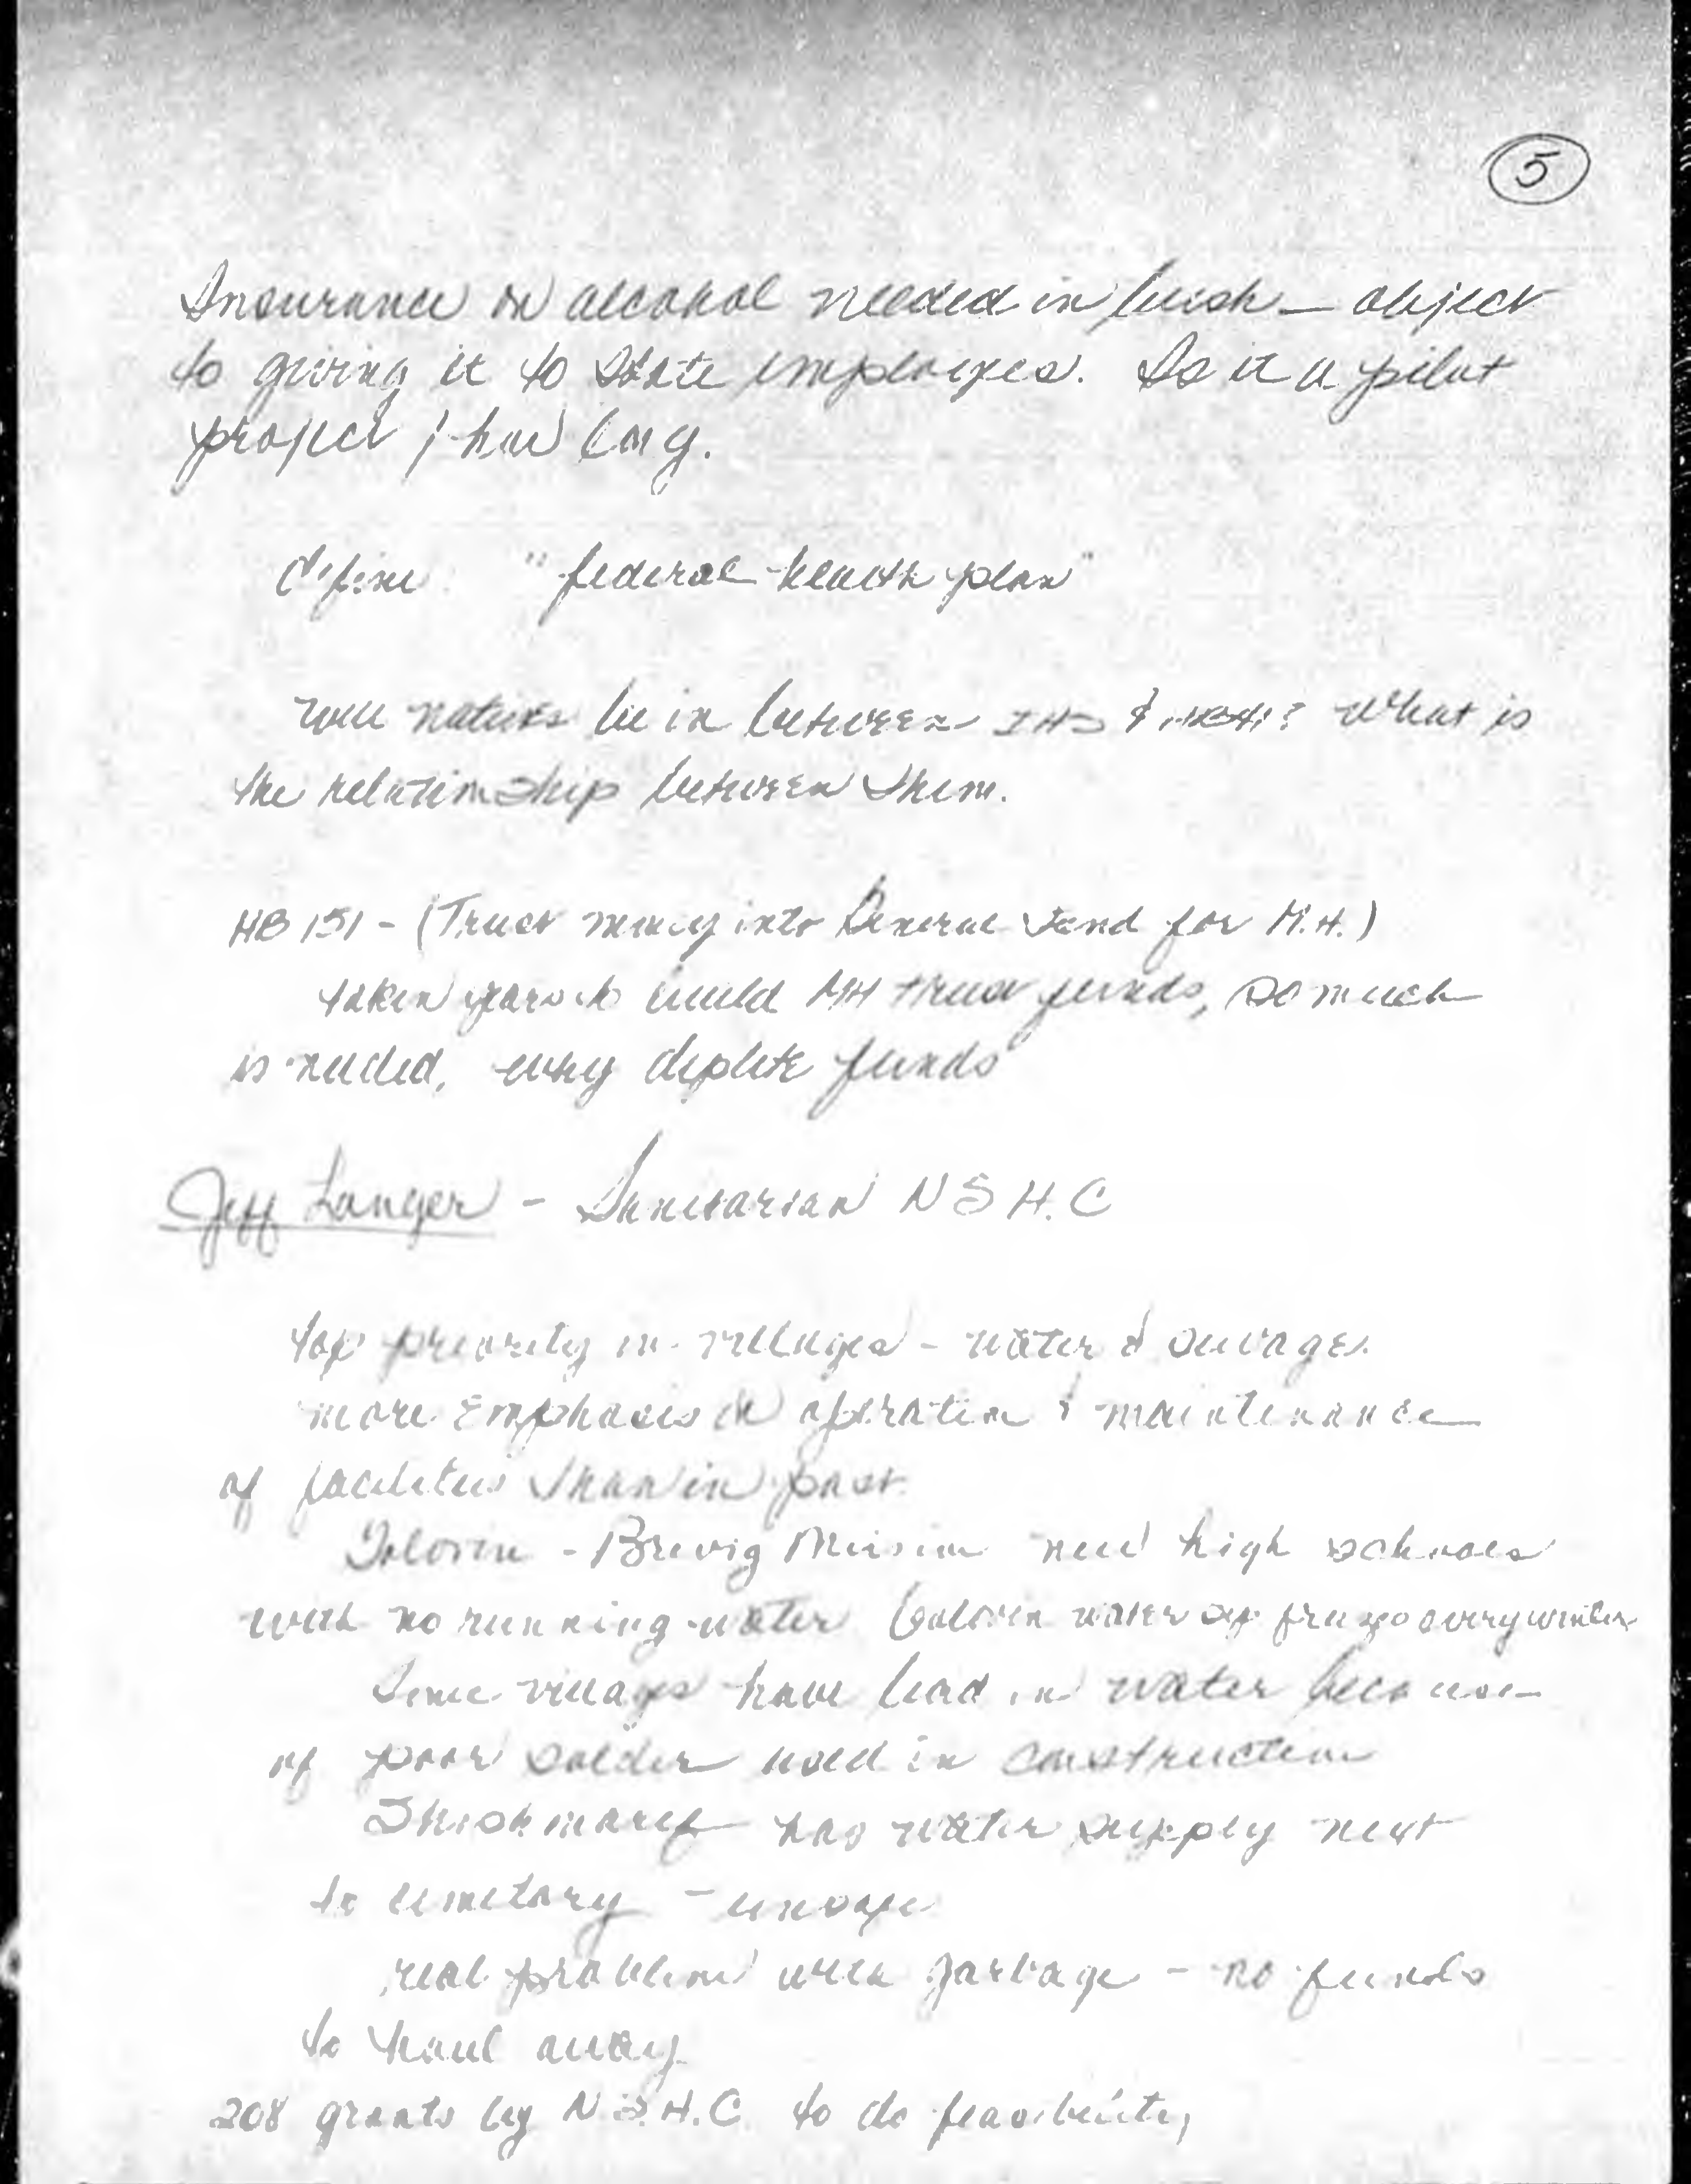 5
Insurance on alcohol needed in bush – object
to giving it to State employees. Is it a pilot
project, how long.
define "federal health plan"
will natives be in between IHS & ? What is
the relationship between them.
HB 151 - (Trust money into General Fund for M.H.)
taken years to build MH trust funds, so much
is needed, why deplete funds
Jeff Langer - Sanitarian N S H. C
top priority in villages - water & sewage.
more emphasis on operation & maintenance
of facilities than in past.
Golovin - Brevig Mission new high schools
with no running water Golovin water sys froze every winter
Some villages have lead in water because
of poor solder used in construction
Shishmaref has water supply next
to cemetary - unsafe
real problem with garbage - no funds
to haul away
208 grants by N.S.H.C. to do feasibility